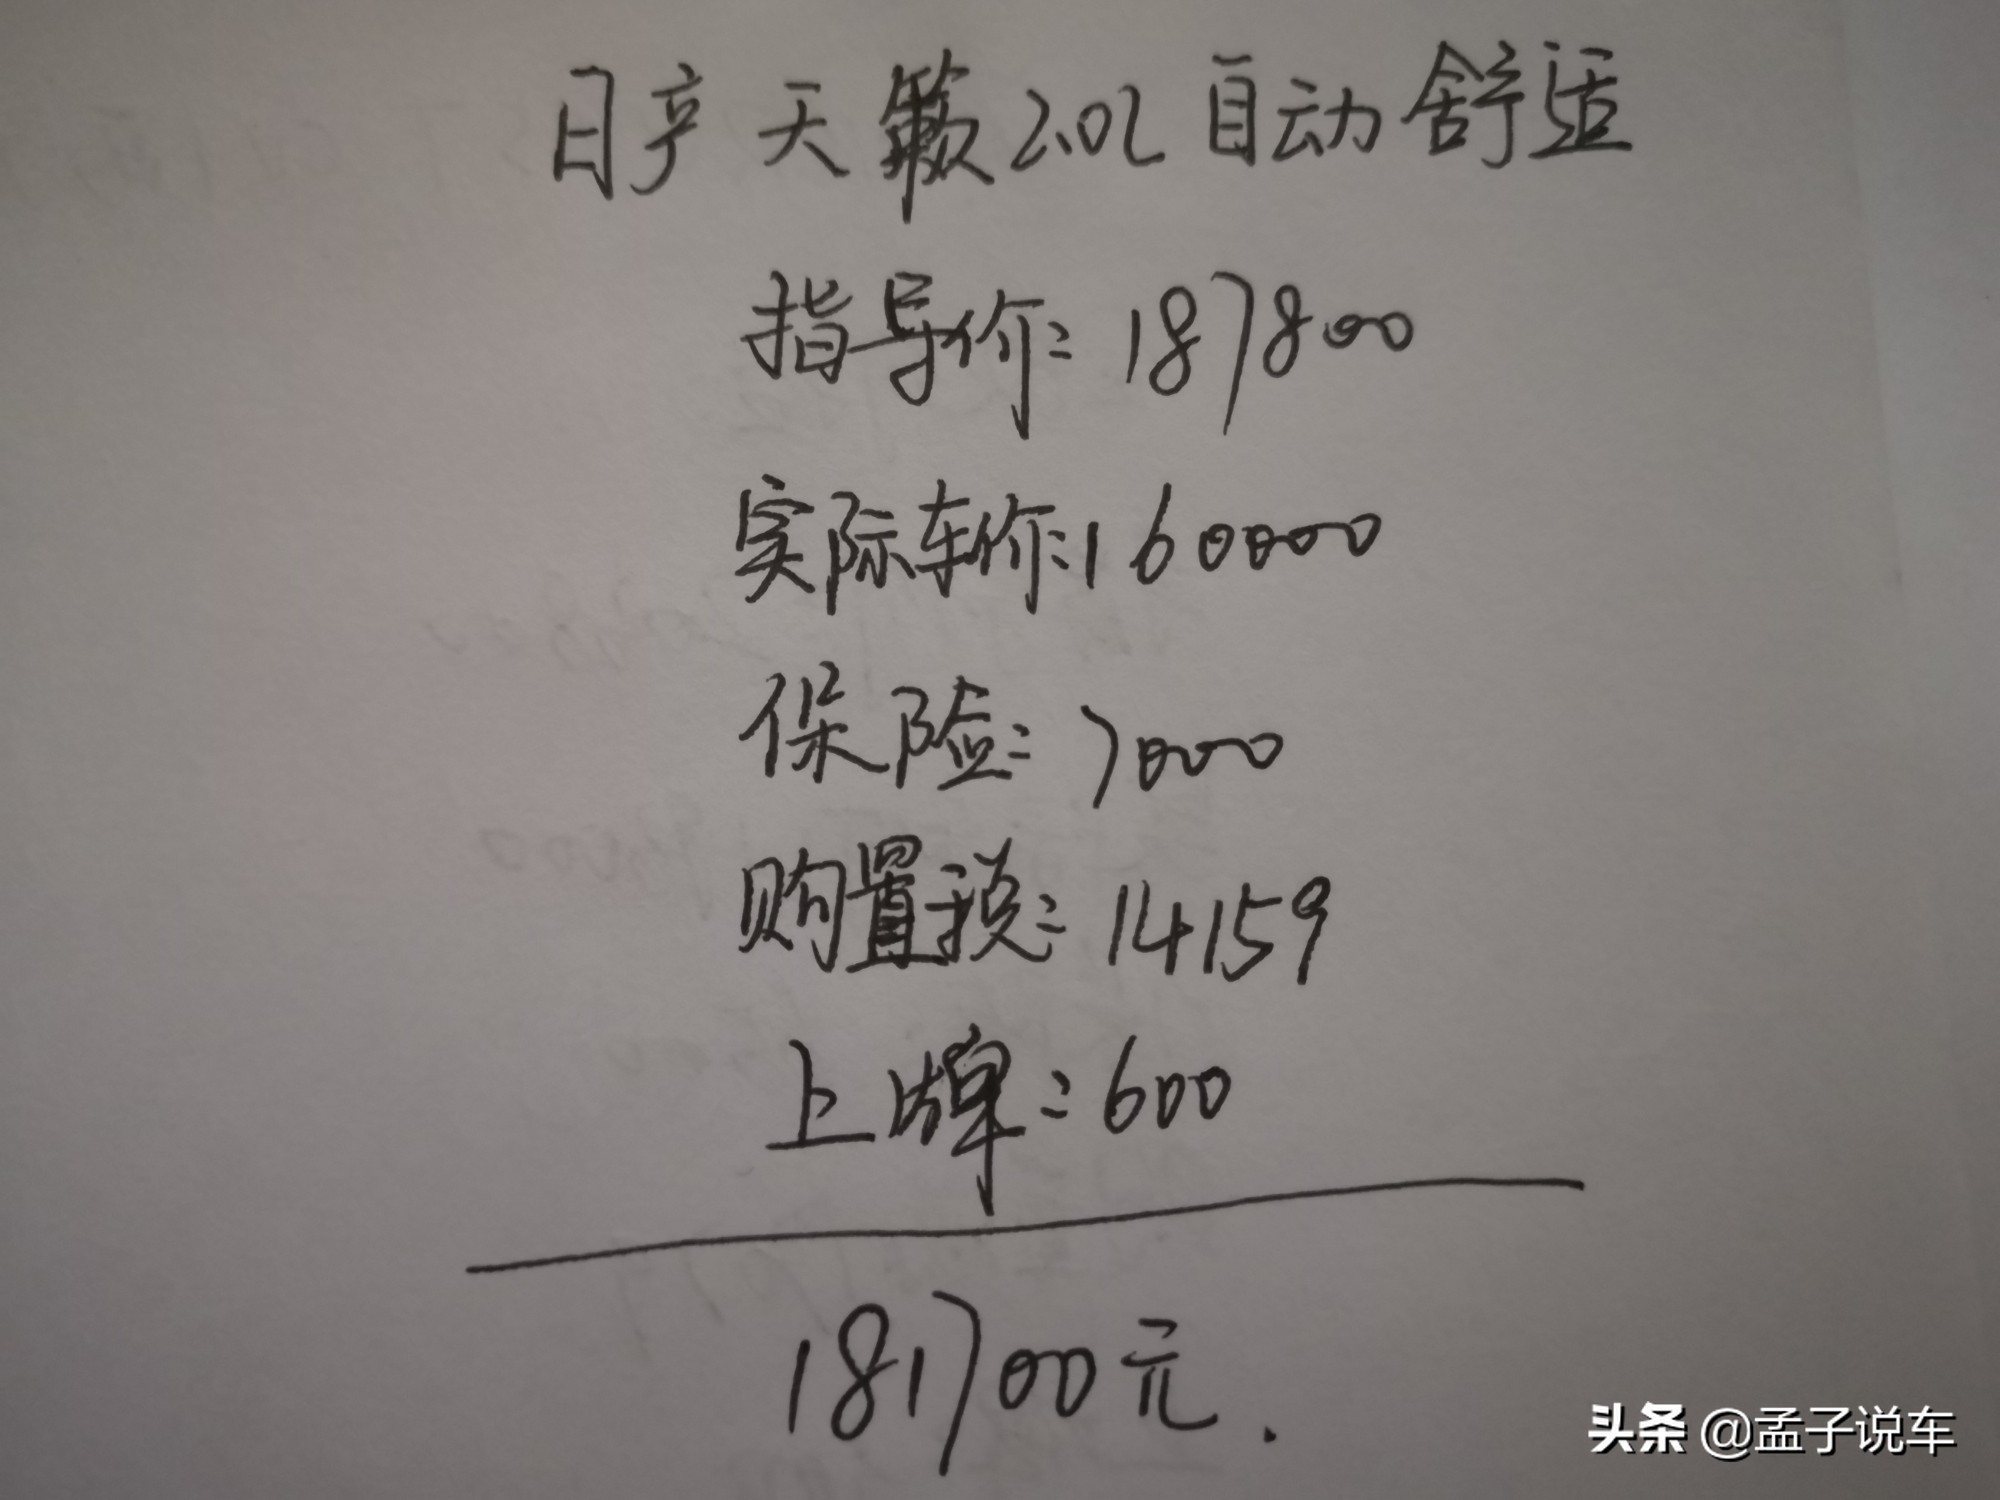 日产 天籁2.0L 自动舒适
指导价:187800
实际车价:160000
保险:7000
购置税:14159
上牌:600
181700元.
头条 @孟子说车